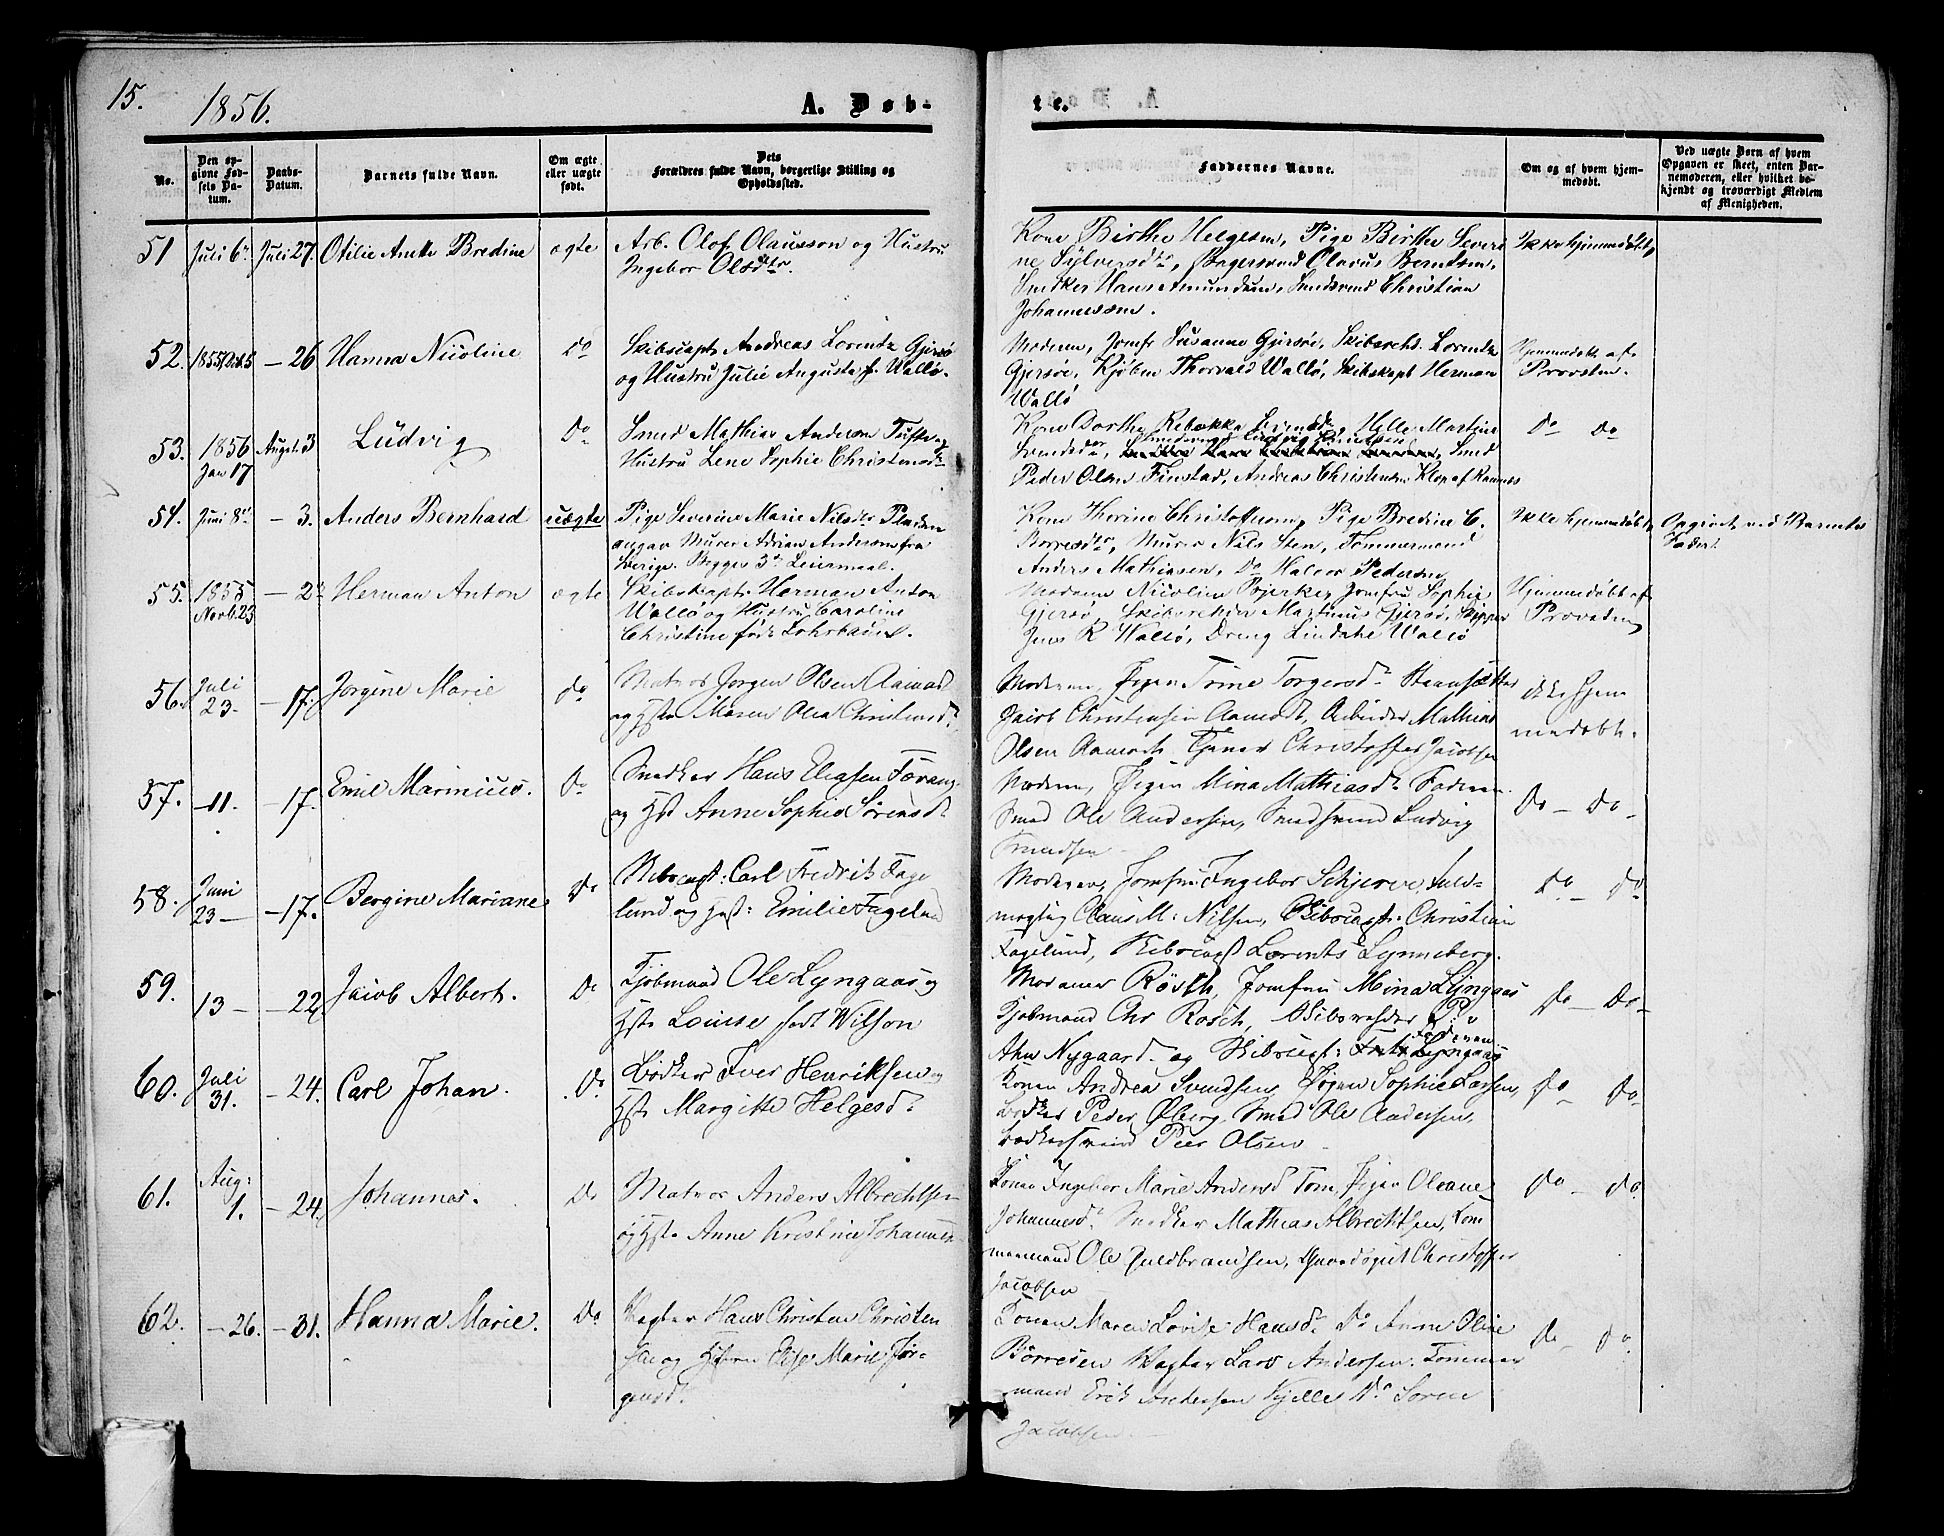 15.
1856.
A. Døb-
te.
No.
Den op-
givne Fød-
sels Da-
tum.
Daabs-
Datum.
Barnets fulde Navn.
Om ægte
eller uægte
født.
Dets
Forældres fulde Navn, borgerlige Stilling og
Opholdssted.
Faddernes Navne.
Om og af hvem hjem-
medøbt.
Ved uægte Børn af hvem
Opgaven er skeet, enten Bar-
nemoderen, eller hvilket be-
kjendt og troværdigt Medlem
af Menigheden.
51 Juli 6 Juli 27. Otilie Bredine ægte
Arb. Olof Olausson og Hustru
Ingebor Olsdtr.
Kone Birthe Helgesen, Pige Birthe Severi
ne Sylversdtr, Olavus Berntsen,
Snedker Hans Amundsen, Christian
Johannessen.
Ikke hjemmedøbt
52. 1855 - 26 Hanna Nicoline Do
Skibscapt Andreas Lorentz Gjersø
og Hustru Julie Augusta f. Wallø.
Moderen, Jomfr Susanne Gjersøe, Skibsrehd. Lorentz
Gjersøe, Kjøbm Thorvald Wallø, Skibskapt Herman
Wallø
Hjemmedøbt af
Provsten.
53. 1856
Jan 17 August 3 Ludvig Do
Smed Mathias Andersen
Hustru Lene Sophie Christensdtr
Kone Dorthe Rebækka Helle Martine
Svendsdtr, Smed
Peder Olsen Finstad, Andreas Christensen Klop af Ramnes
Do Do
54. Juni 8 - 3. Anders Bernhard uægte
Pige Severine Marie Nilsdtr
Murer Adrian Andersen fra
Sverige. Begges 3die Leiermaal.
Kone Thorine Christoffersen, Pige Bredine C.
Borresdtr, Murer Nils Sten, Tømmermand
Anders Mathiasen, Do Halvor Pedersen
Ikke hjemmedøbt
Opgivet ved Barnets
Fader.
55. 1855
Novb. 23 - 2 Herman Anton ægte
Skibskapt. Herman Anton
Wallø og Hustru Caroline
Christine født
Moderen Nicoline Bjerke, Jomfru Sophie
Gjersø, Skibsreder Martinus Gjersø, Skipper
Jens R Wallø, Dreng Lindahl Wallø
Hjemmedøbt af
Provsten
56. Juli
23. - 17. Jorgine Marie do
Matros Jorgen Olsen Aamodt
og Hst. Maren Olea Christensdtr.
Moderen, Pigen Trine Torgersdtr
Jacob Christensen Aamodt, Arbeider Mathias
Olsen Aamodt Tjener Christoffer Jacobsen
ikke hjem
medøbt.
57. - 11. - 17. Emil Marinius. do
Snedker Hans Eliasen
og Hst Anne Sophie Sørensdtr
Moderen, Pigen Mina Mathiasdtr Faderen
Smed Ole Andersen, Smedsvend Ludvig
Knudsen
Do - Do -
58. Juni
23 - - 17. Bergine Mariane Do
Skibscapt: Carl Fredrik Fage
lund og Hst: Emilie Fagelund
Moderen, Jomfru Ingebor Schjerve, Fuld-
mægtig Claus M: Nilsen, Skibscapt: Christian
Fagelund, Skibscapt Lorents Lynneberg.
Do - Do
59. 13 - - 22 Jacob Albert. Do
Kjøbmand Ole Lyngaas og
Hst. Louise født Wilson
Madamer Røsch, Jomfru Mina Lyngaas
Kjøbmand Chr Rosch, Skibsreder
Nygaard og Skibscapt: Lyngaas
Faderen
Do - Do -
60. Juli
31. - 24. Carl Johan. Do
Bødker Iver Henriksen og
Hst. Margitte Helgesdtr
Konen Andrea Svendsen, Pigen Sophie Larsen,
Bødker Peder Øberg, Smed Ole Andersen,
Bødkersvend Peer Olsen
Do - Do -
61. Aug:
1. - 24. Johannes. Do
Matros Anders Albrechtsen
og Hst. Anne Kristine Johannes
Konen Ingebor Marie Andersd Tom, Pigen Oleane
Johannesdtr Snedker Mathias Albrechtsen, Tøm
mermand Ole Guldbrandsen, Christoffer
Jacobsen
Do - Do
62. - 26. - 31. Hanna Marie. Do
Hans Christen Christen
sen og Elise Marie Jør-
gensdtr
Konen Maren Lovise Hansdtr. Do Anne Oline
Børresen Lars Andersen. Tømmer
mand Erik Andersen Kjelle Do Soren
Jacobsen
Do - Do.